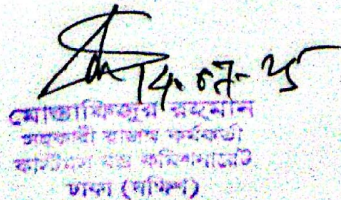 14-07-25
মোস্তাফিজুর রহমান
সহকারী রাজস্ব কর্মকর্তা
কাস্টমস এন্ড কমিশনারেট
ঢাকা (দক্ষিণ)